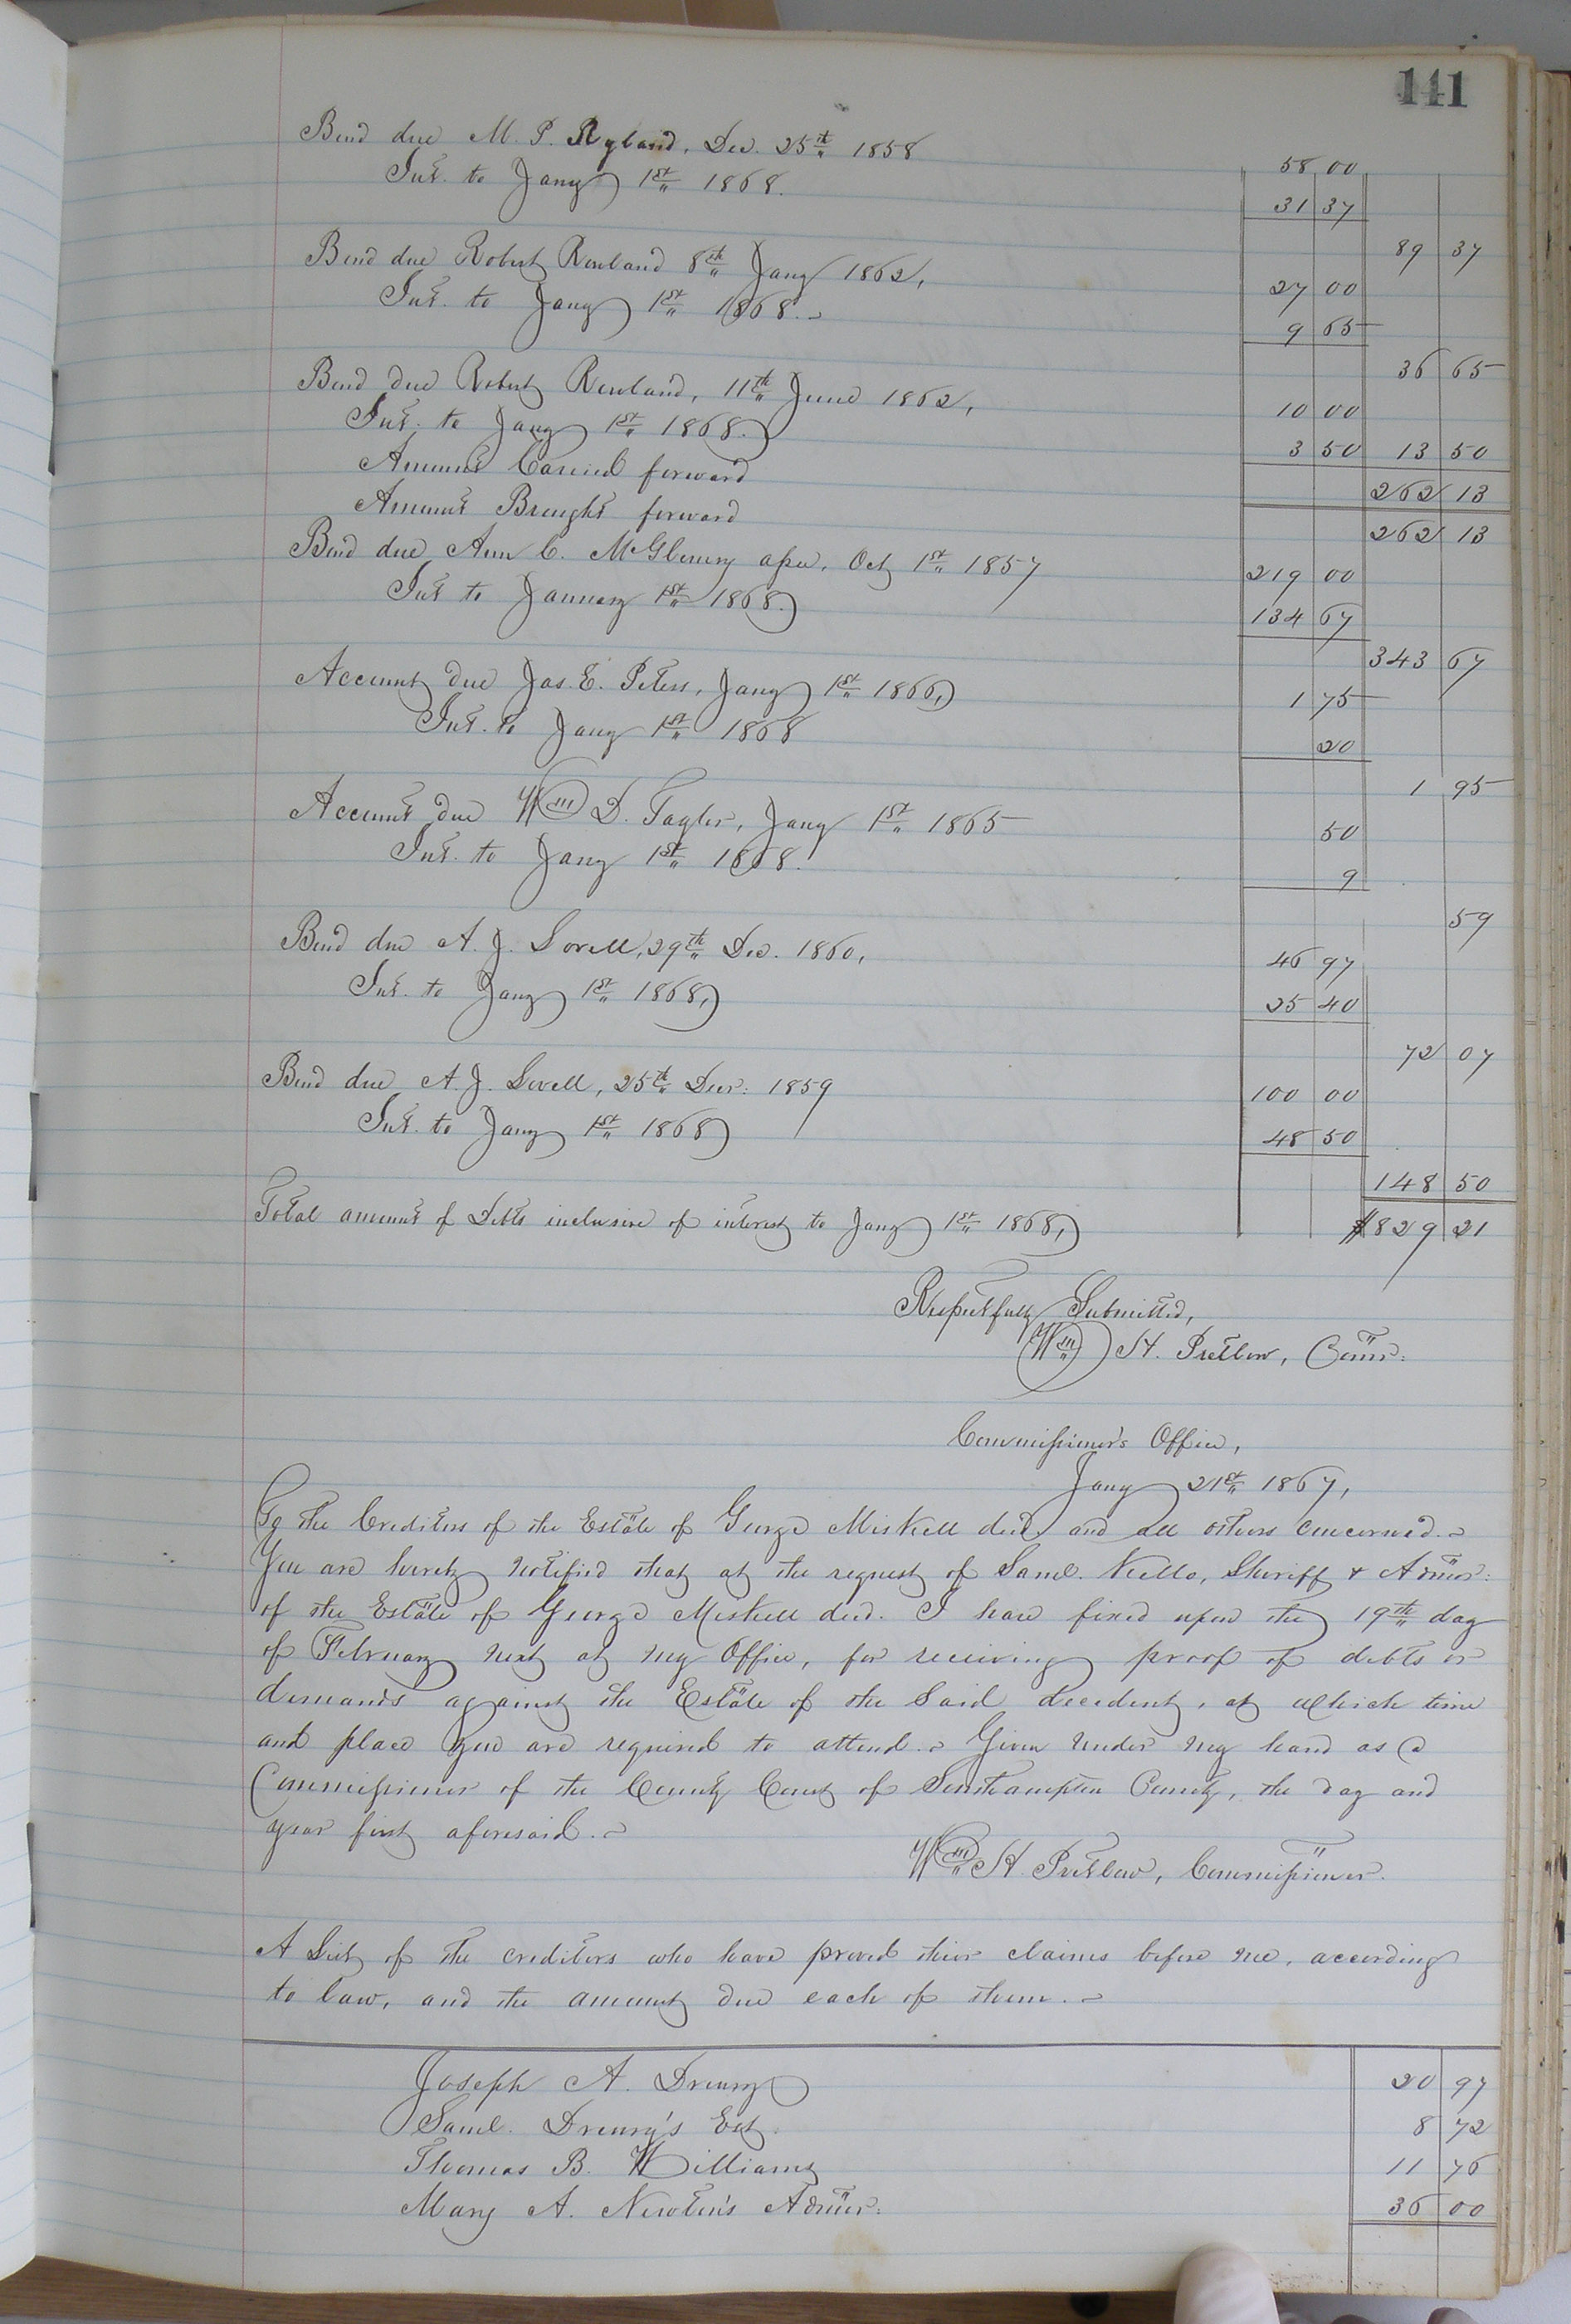 141
Bond due M. P. Ryland, Dec. 25th 1858
58 00
Int. to Jany 1st 1868.
31 37
89 37
Bond due Robert Rowland 8th Jany 1862,
27 00
Int. to Jany 1st 1868.
9 65
36 65
Bond due Robert Rowland, 11th June 1862,
10 00
Int. to Jany 1st 1868.
3 50 13 50
Amount Carried forward
262 13
Amount Brought forward
262 13
Bond due Ann C. Oct 1st 1857
219 00
Int to January 1st 1868.
134 67
343 67
Account due Jas. E. Peters, Jany 1st 1866,
1 75
Int. to Jany 1st 1868
20
1 95
Account due Wm D. Taylor, Jany 1st 1865
50
Int. to Jany 1st 1868.
9
59
Bond due A. J. Lovell, 29th Dec. 1860,
46 97
Int. to Jany 1st 1868,
25 40
72 07
Bond due A. J. Lovell, 25th Decr: 1859
100 00
Int. to Jany 1st 1868
48 50
148 50
Total amount of Debts inclusive of interest to Jany 1st 1868,
$829 21
Respectfully Submitted,
Wm H. Pretlow, Comr:
Commissioner's Office,
Jany 21st 1867,
To the Creditors of the Estate of George Miskell decd. and all others concerned.
You are hereby notified that at the request of Saml. Kello, Sheriff & Admor:
of the Estate of George Miskell decd. I have fixed upon the 19th day
of February next at my Office, for receiving proof of debts or
demands against the Estate of the Said decedent, at which time
and place you are required to attend. Given under my hand as a
Commissioner of the County Court of Southampton County, the day and
year first aforesaid.
Wm H. Pretlow, Commissioner.
A List of the creditors who have proved their claims before me, according
to law, and the amount due each of them.
Joseph A. Drewry 20 97
Saml. Drewry's Est. 8 72
Thomas B. Williams 11 76
Mary A. Newton's Admor: 36 00